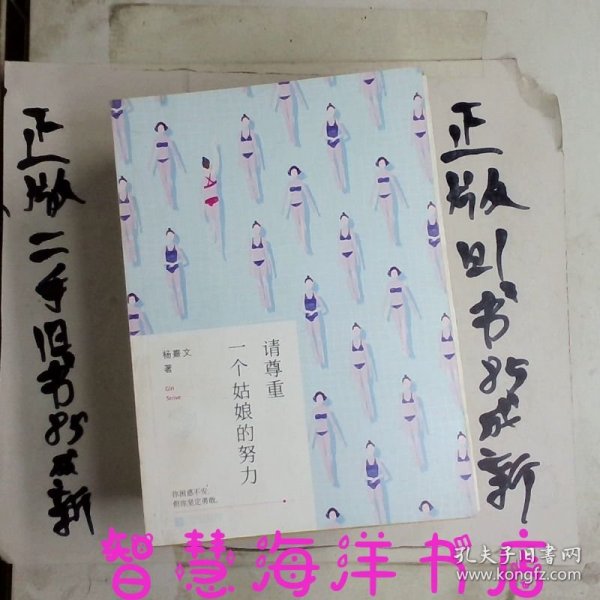 正版二手旧书85成新
请尊重
一个姑娘的努力
杨熹文
著
Girl
Strive
你困惑不安,
但你坚定勇敢。
正版旧书85成新
智慧海洋书店
孔夫子旧书网
www.kongfz.com